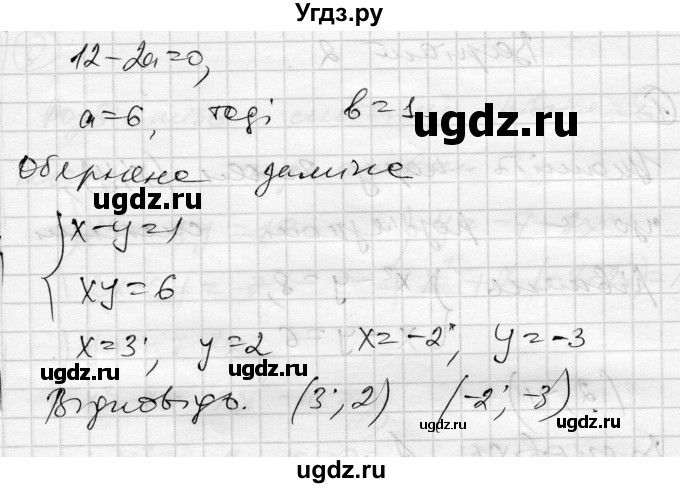 Угдз.ру
12-2a=0,
a=6, тоді b=1
угдз.ру
Обернена заміна
ugdz.ru
x-y=1
xy=6
ugdz.ru
x=3; y=2 x=-2; y=-3
ugdz.ru
ugdz.ru
Відповідь. (3; 2) (-2; -3).
ugdz.ru
ugdz.ru
ugdz.ru